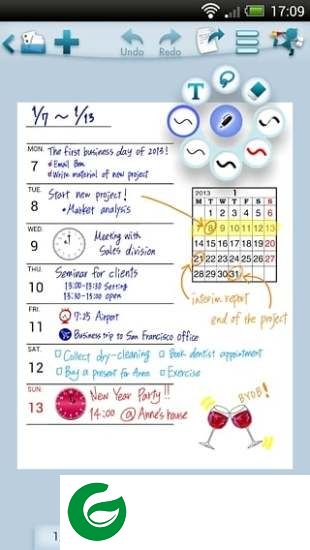 17:09
Undo Redo
T
1/7 ~ 1/13
MON.
7
The first business day of 2013!
* Email Ben
* Write material of new project
TUE.
8
Start new project!
* Market analysis
WED.
9
Meeting with
Sales division
THU.
10
Seminar for clients
13:00-13:30 Setting
13:30-15:00 open
FRI.
11
7:25 Airport
Business trip to San Francisco office
SAT.
12
□ Collect dry-cleaning □ Book dentist appointment
□ Buy a present for Anne □ Exercise
SUN.
13
New Year Party!!
14:00 @ Anne's house
2013 1
M T W T F S S
1 2 3 4 5 6
7 8 9 10 11 12 13
14 15 16 17 18 19 20
21 22 23 24 25 26 27
28 29 30 31
interim report
end of the project
BYOB!
1